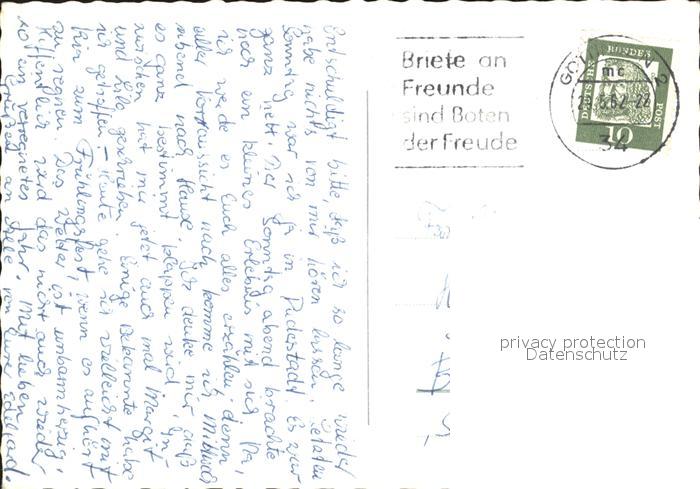 Entschuldigt bitte, daß ich so lange wieder
habe nichts von mir hören lassen. Letzten
Sonntag war ich ja in Duderstadt. Es war
ganz nett. Der Sonntag abend brachte
noch ein kleines Erlebnis mit sich. Na,
ich werde es Euch alles erzählen, denn
aller Voraussicht nach komme ich Mittwoch
abend nach Hause. Ich denke mir, daß
es ganz bestimmt klappen wird.
zwischen hat mir jetzt auch mal Margit
und geschrieben. Einige Bekannte habe
ich getroffen. - Heute gehe ich vielleicht mit
zum Frühlingsfest, wenn es aufhört
zu regnen. Das Wetter ist unbarmherzig,
Hoffentlich wird das nicht auch wieder
so ein verregnetes Jahr. Mit lieben
Grüßen an alle von
Briefe an
Freunde
sind Boten
der Freude
mc
.6.62-22
34
DEUTSCHE BUNDESPOST
10
privacy protection
Datenschutz